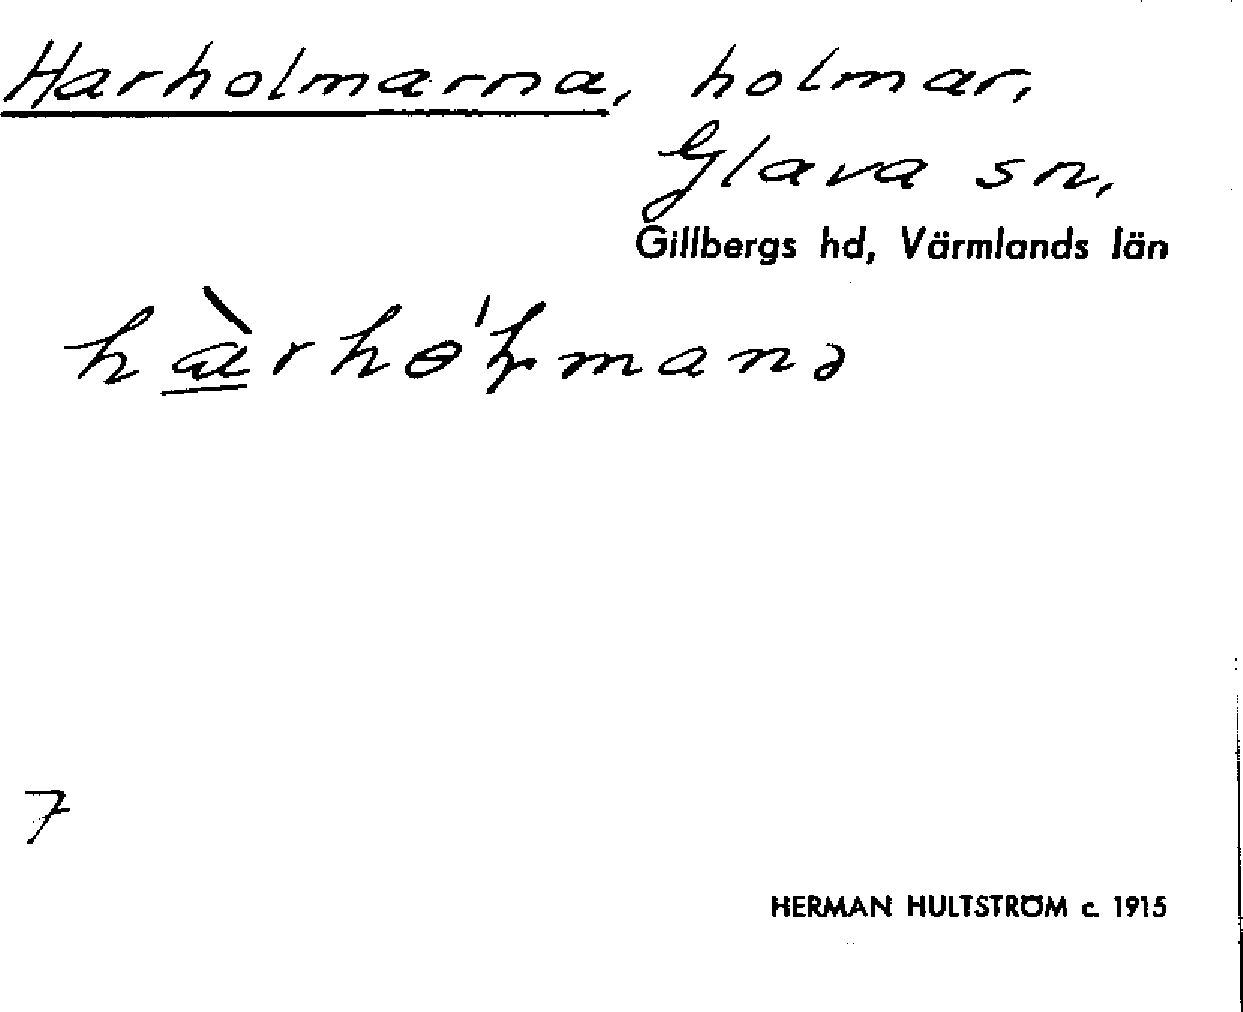 Harholmarna, holmar,
Glava sn,
Gillbergs hd, Värmlands län
hàrhɵ'ɫmanə
7
HERMAN HULTSTRÖM c. 1915